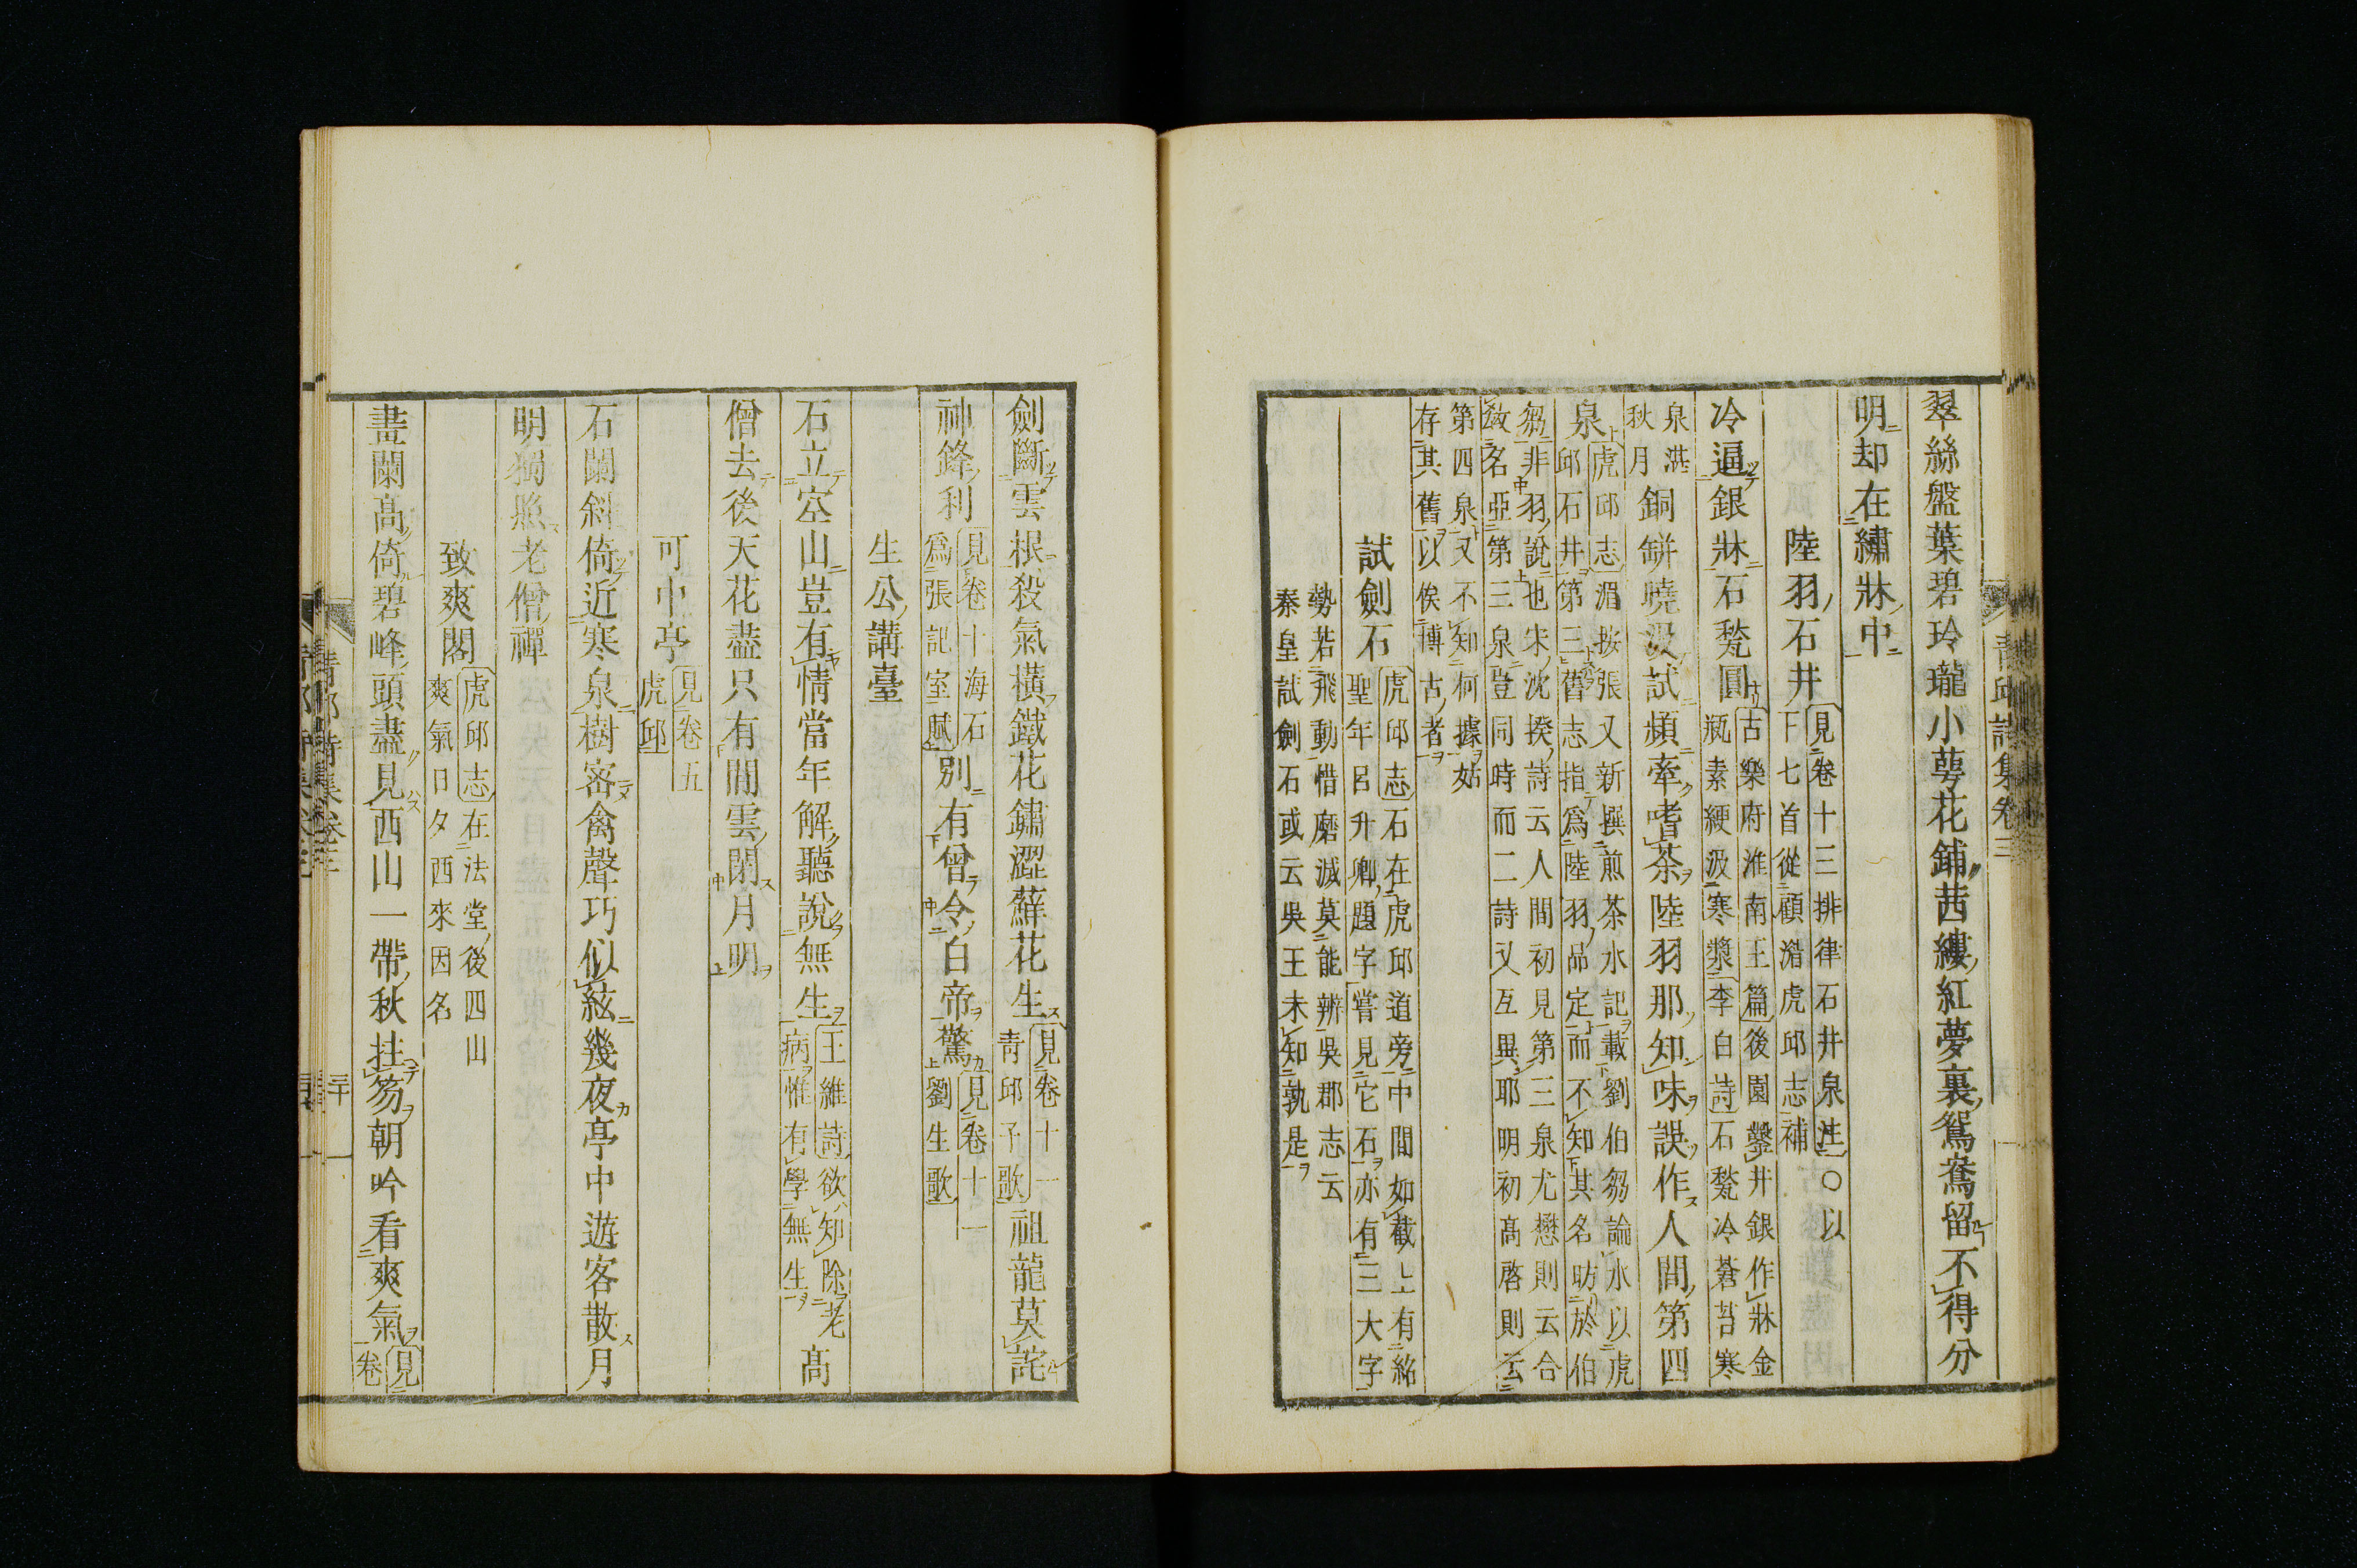 翠絲盤葉碧玲瓏小蕚花鋪茜縷紅夢裏鴛鴦留不得分
明却在繡牀中
陸羽石井
見卷十三排律石井泉注○以
下七首從顧湄虎邱志補
冷逼銀牀石甃圓
古樂府淮南王篇後園鑿井銀作牀金
瓶素綆汲寒漿李白詩石甃冷蒼苔寒
泉湛
秋月
銅缾曉汲試頻牽嗜茶陸羽那知味誤作人間第四
泉
虎邱志湄按張又新撰煎茶水記載劉伯芻論水以虎
邱石井第三舊志指爲陸羽品定而不知其名昉於伯
芻非羽說也宋沈揆詩云人間初見第三泉尤懋則云合
敓名亞第三泉豈同時而二詩又互異耶明初高啓則云
第四泉又不知何據姑
存其舊以俟博古者
試劍石
虎邱志石在虎邱道旁中間如截上有紹
聖年呂升卿題字嘗見它石亦有三大字
勢若飛動惜磨滅莫能辨吳郡志云
秦皇試劍石或云吳王未知孰是
劍斷雲根殺氣橫鐵花鏽澀蘚花生
見卷十一
靑邱子歌
祖龍莫詫
神鋒利
見卷十海石
爲張記室賦
別有曾令白帝驚
見卷十一
劉生歌
生公講臺
石立空山豈有情當年解聽說無生
王維詩欲知除老
病惟有學無生
高
僧去後天花盡只有閒雲閉月明
可中亭
見卷五
虎邱
石闌斜倚近寒泉樹密禽聲巧似絃幾夜亭中遊客散月
明獨照老僧禪
致爽閣
虎邱志在法堂後四山
爽氣日夕西來因名
畫闌高倚碧峰頭盡見西山一帶秋拄笏朝吟看爽氣
見
卷